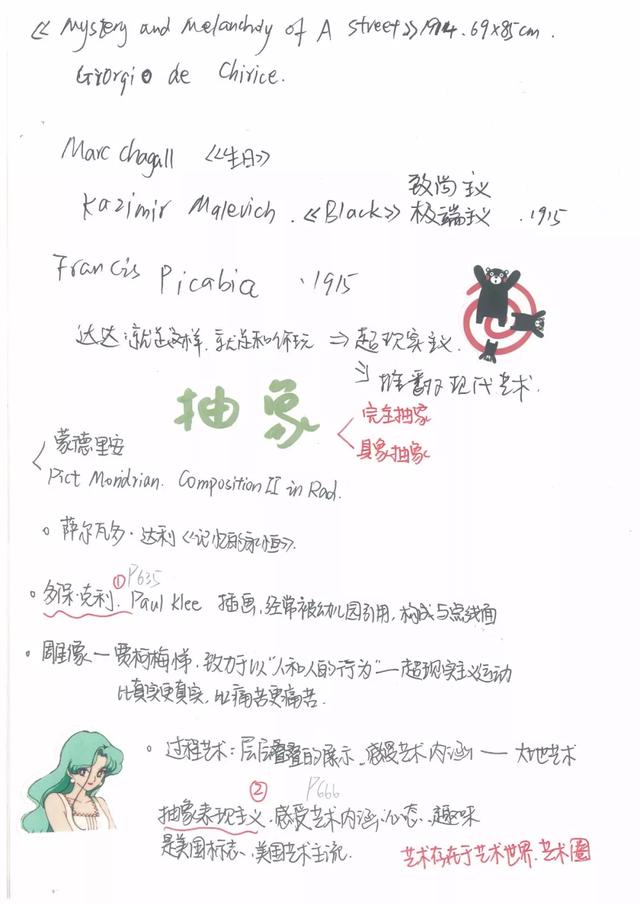 《Mystery and Melancholy of A street》1914. 69×85cm.
Giorgio de Chirice.
Marc Chagall 《生日》
Kazimir Malevich. 《Black》 致尚主义 极端主义 . 1915
Francis Picabia . 1915
达达：就是这样，就是和你玩 ⇒ 超现实主义.
推翻了现代艺术.
抽象
完全抽象
具象抽象
蒙德里安
Pict Mondrian. Composition II in Rad.
。萨尔瓦多·达利《记忆的永恒》.
① P635
。多保·克利. Paul Klee 插画，经常被幼儿园引用，构成与点线面
。雕像—贾柯梅悌，致力于以“人和人的行为”—超现实主义运动
比真实更真实，比痛苦更痛苦.
。过程艺术：层层叠叠的展示、感受艺术内涵——大地艺术
② P666
抽象表现主义、感受艺术内涵、心态、趣味
是美国标志、美国艺术主流.
艺术存在于艺术世界.艺术圈